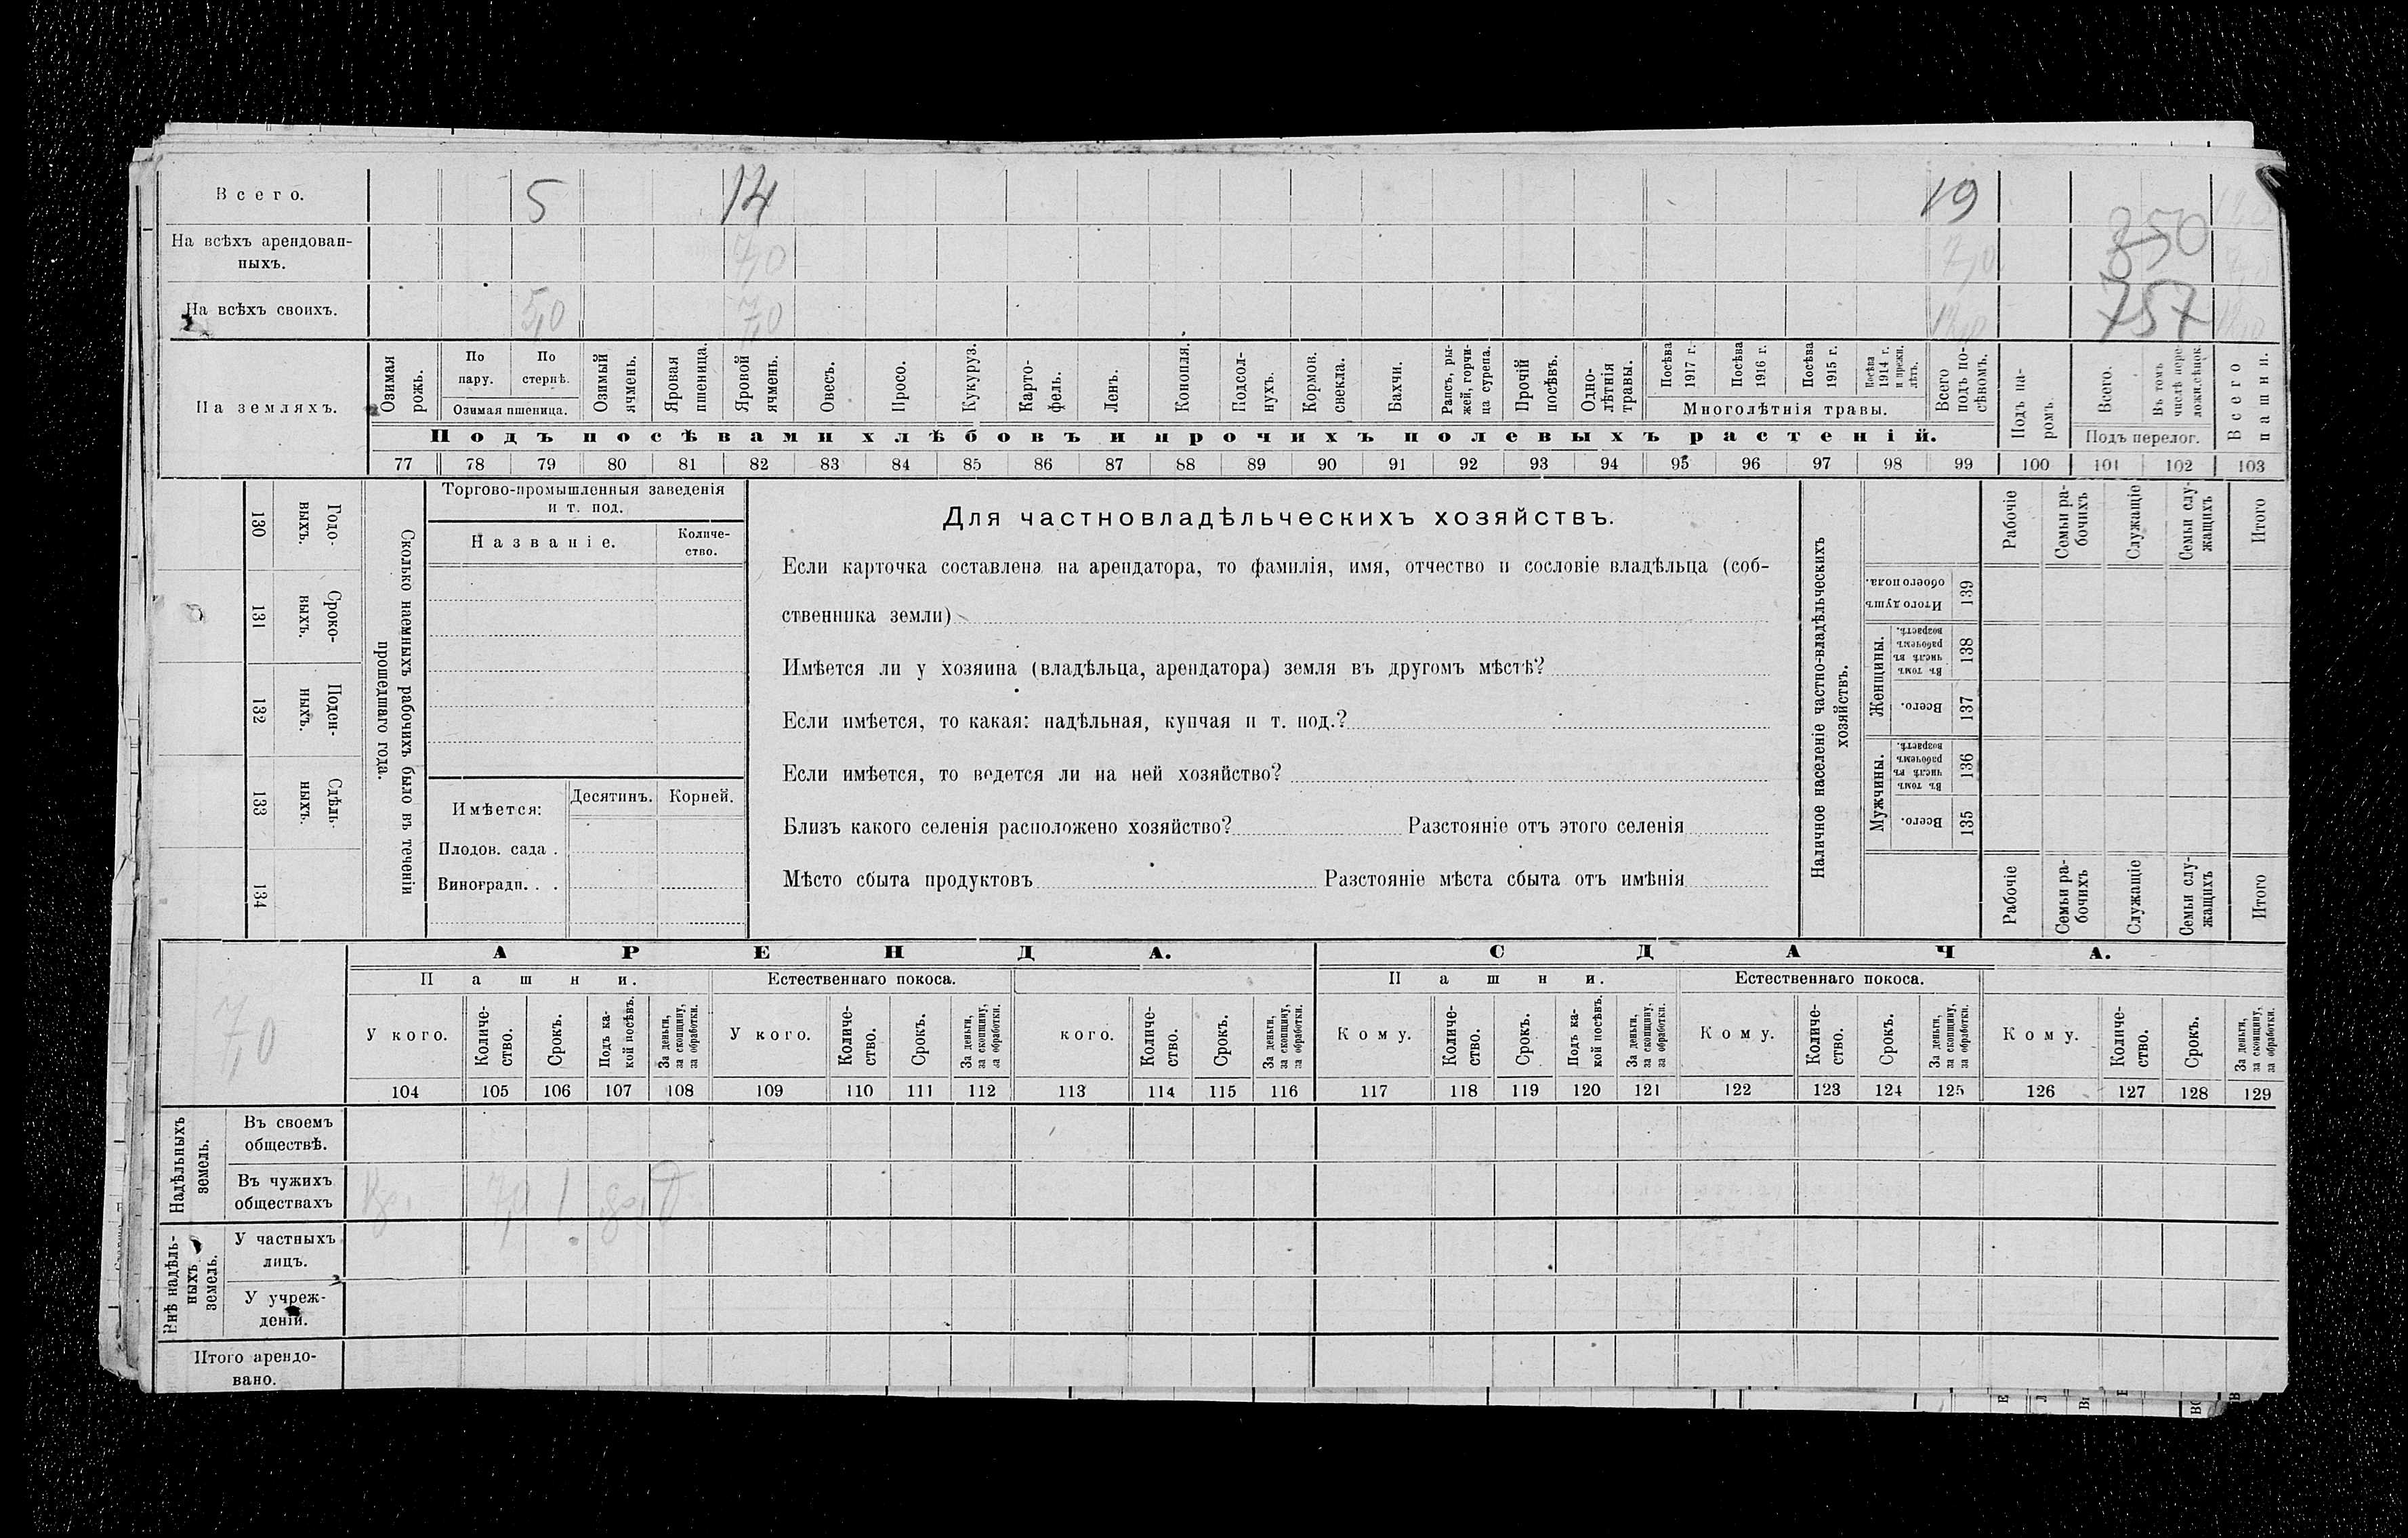 Всего. 5 14 19
На всѣхъ арендован-
ныхъ. 7,0 7,0 350
На всѣхъ своихъ. 5,0 7,0 12,0 757
На земляхъ.
Озимая рожь.
По пару.
По стернѣ.
Озимая пшеница.
Озимый ячмень.
Яровая пшеница.
Яровой ячмень.
Овесъ.
Просо.
Кукуруз.
Карто-
фель.
Ленъ.
Конопля.
Подсол-
нухъ.
Кормов. свекла.
Бахчи.
Рапсъ, ры-
жей, горчи-
ца сурепа.
Прочій посѣвъ.
Одно-
лѣтнія
травы.
Посѣва 1917 г.
Посѣва 1916 г.
Посѣва 1915 г.
Посѣва 1914 г. и прежн. лѣтъ.
Многолѣтнія травы.
Всего подъ по-
сѣвомъ.
Подъ па-
ромъ.
Всего.
Въ томъ числѣ пере-
ложн. сѣнок.
Подъ перелог.
Всего пашни.
Подъ посѣвами хлѣбовъ и прочихъ полевыхъ растеній.
77 78 79 80 81 82 83 84 85 86 87 88 89 90 91 92 93 94 95 96 97 98 99 100 101 102 103
130 Годо-
выхъ.
131 Сроко-
выхъ.
132 Поден-
ныхъ.
133 Сдѣль-
ныхъ.
134
Сколько наемныхъ рабочихъ было въ теченіи
прошедшаго года.
Торгово-промышленныя заведенія
и т. под.
Названіе.
Количе-
ство.
Имѣется: Десятинъ. Корней.
Плодов. сада .
Виноградн. . .
Для частновладѣльческихъ хозяйствъ.
Если карточка составлена на арендатора, то фамилія, имя, отчество и сословіе владѣльца (соб-
ственника земли)
Имѣется ли у хозяина (владѣльца, арендатора) земля въ другомъ мѣстѣ?
Если имѣется, то какая: надѣльная, купчая и т. под.?
Если имѣется, то ведется ли на ней хозяйство?
Близъ какого селенія расположено хозяйство? Разстояніе отъ этого селенія
Мѣсто сбыта продуктовъ Разстояніе мѣста сбыта отъ имѣнія
Наличное населеніе частно-владѣльческихъ
хозяйствъ.
Рабочіе
Семьи ра-
бочихъ
Служащіе
Семьи слу-
жащихъ
Итого
Итого душъ
обоего пола. 139
Женщины.
Въ томъ числѣ въ рабочемъ возрастѣ. 138
Всего. 137
Мужчины.
Въ томъ числѣ въ рабочемъ возрастѣ. 136
Всего. 135
Рабочіе
Семьи ра-
бочихъ
Служащіе
Семьи слу-
жащихъ
Итого
АРЕНДА. СДАЧА.
Пашни. Естественнаго покоса. Пашни. Естественнаго покоса.
7,0
У кого.
Количе-
ство.
Срокъ.
Подъ ка-
кой посѣвъ.
За деньги,
за скопщину,
за обработки.
У кого.
Количе-
ство.
Срокъ.
За деньги,
за скопщину,
за обработки.
кого.
Количе-
ство.
Срокъ.
За деньги,
за скопщину,
за обработки.
Кому.
Количе-
ство.
Срокъ.
Подъ ка-
кой посѣвъ.
За деньги,
за скопщину,
за обработки.
Кому.
Количе-
ство.
Срокъ.
За деньги,
за скопщину,
за обработки.
Кому.
Количе-
ство.
Срокъ.
За деньги,
за скопщину,
за обработки.
104 105 106 107 108 109 110 111 112 113 114 115 116 117 118 119 120 121 122 123 124 125 126 127 128 129
Надѣльныхъ
земель.
Въ своемъ
обществѣ.
Въ чужихъ
обществахъ 7,0 1
Внѣ надѣль-
ныхъ
земель.
У частныхъ
лицъ.
У учреж-
деній.
Итого арендо-
вано.